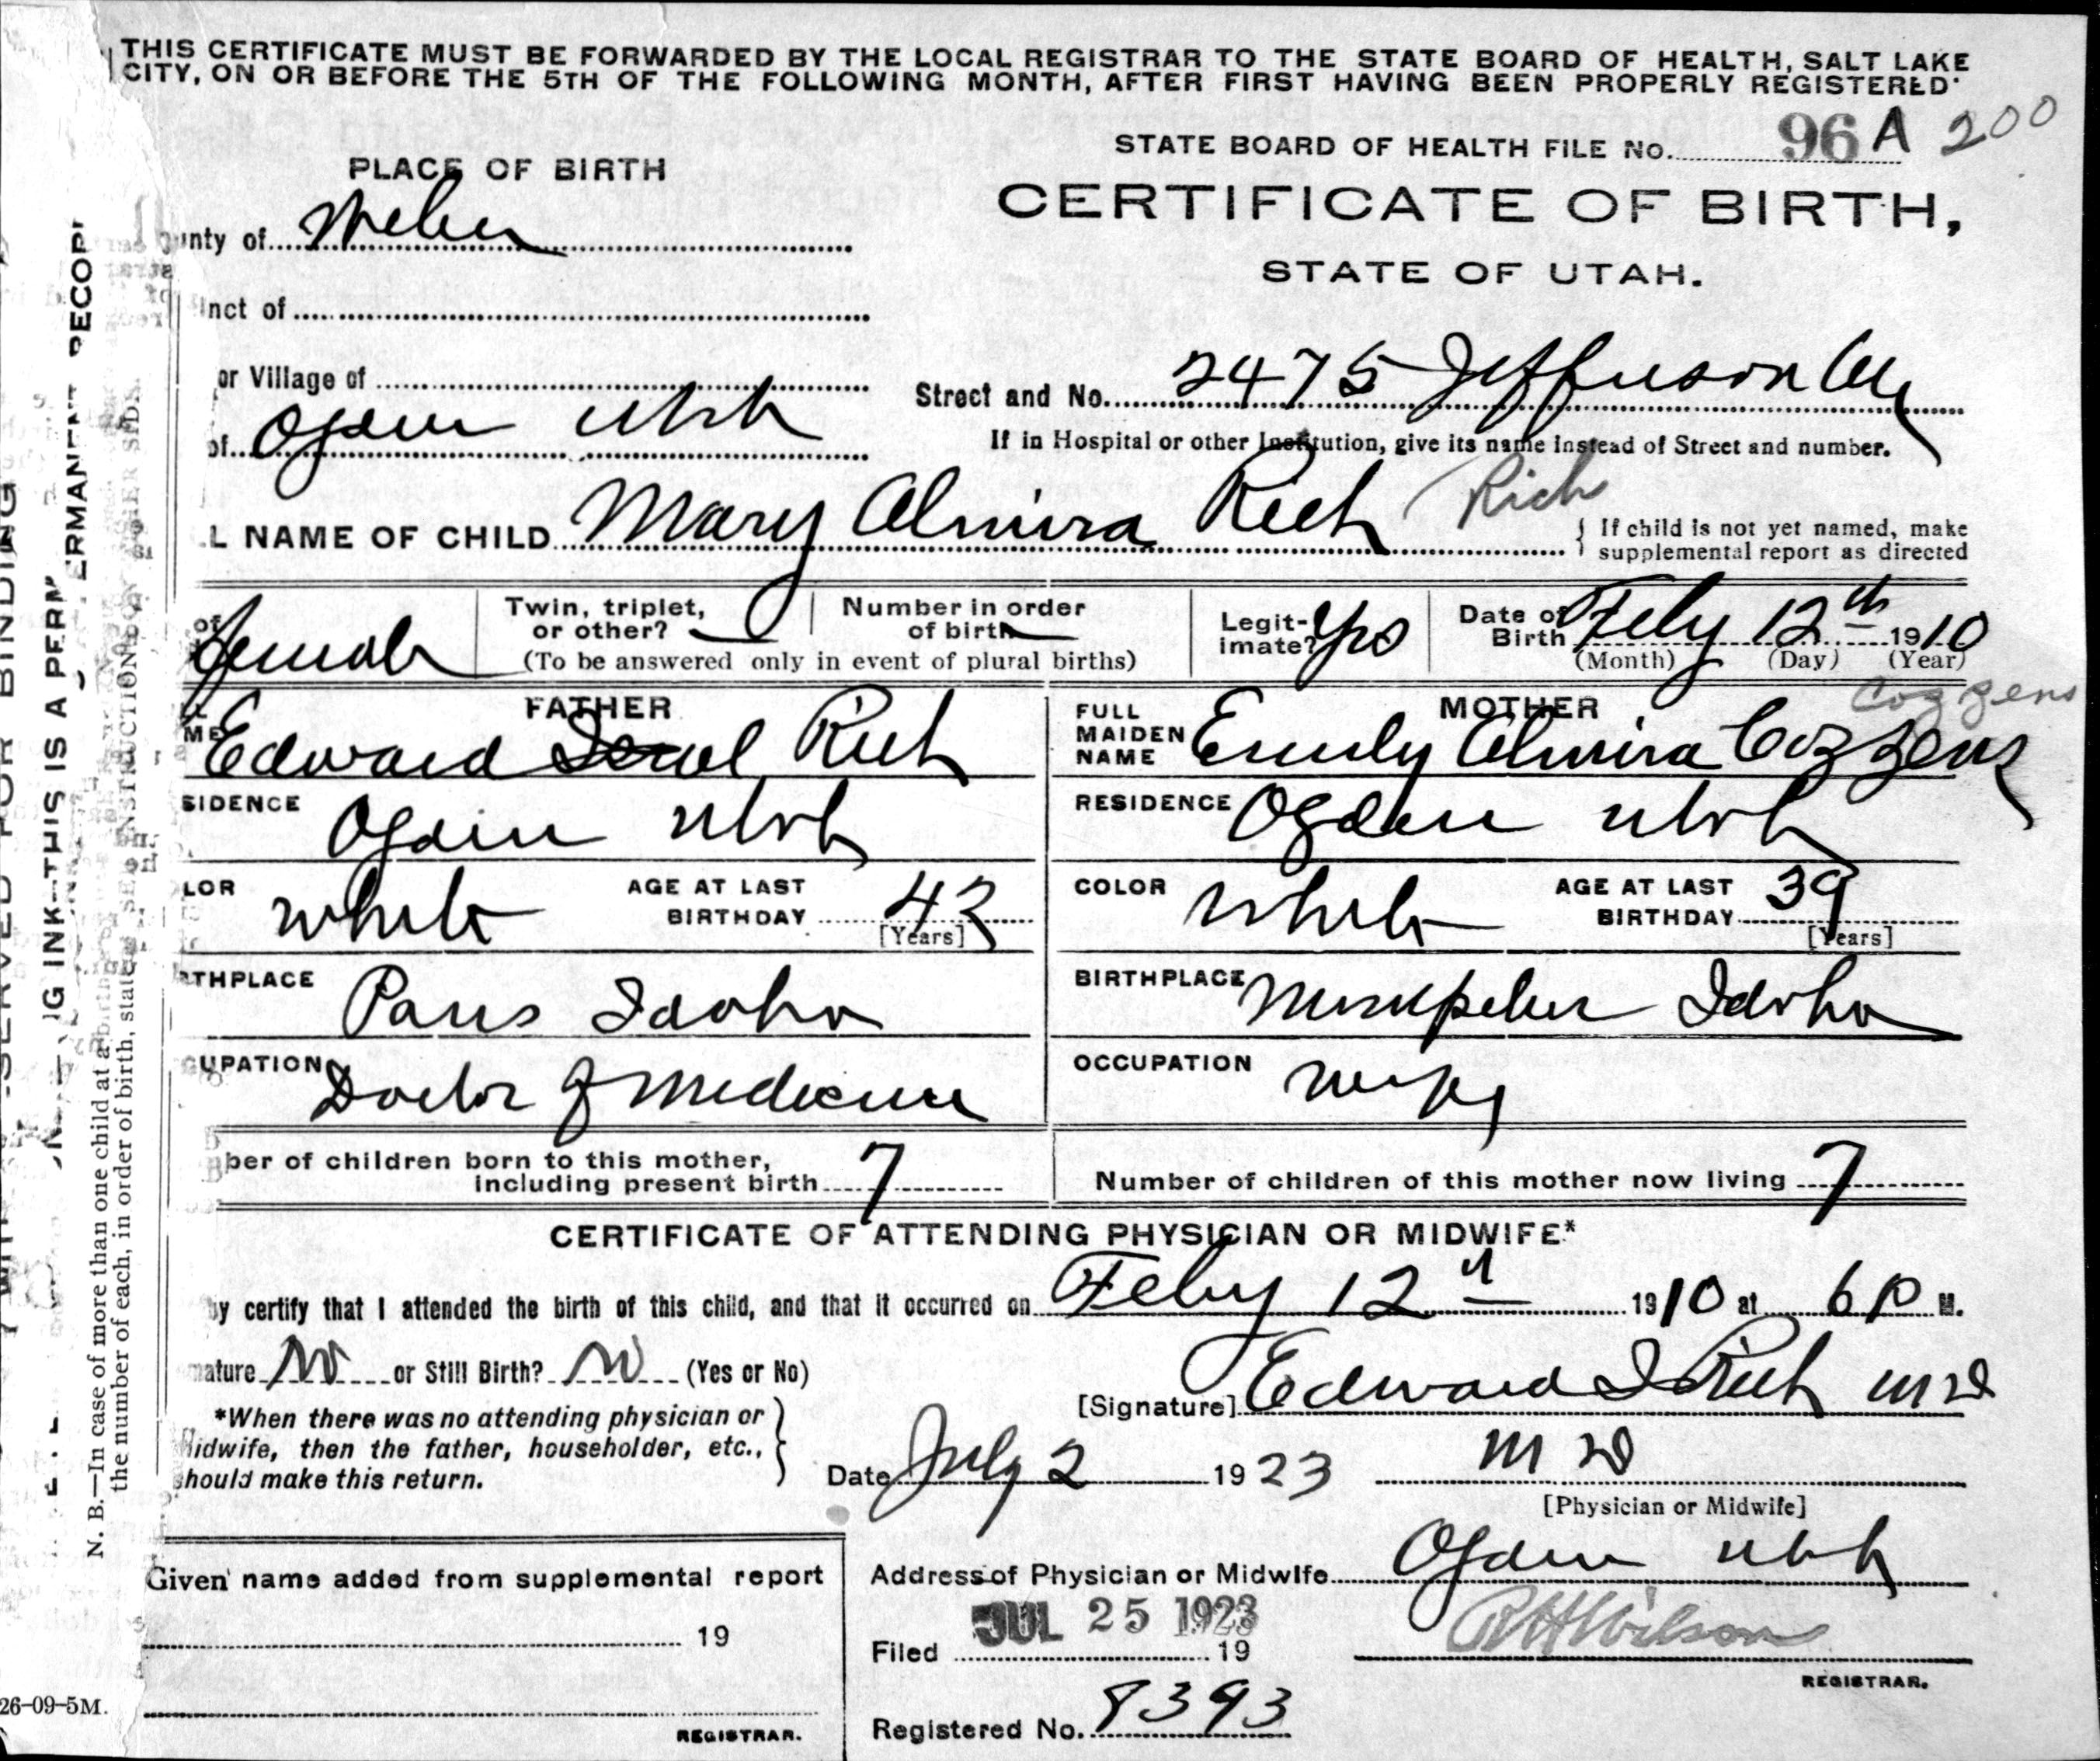 THIS CERTIFICATE MUST BE FORWARDED BY THE LOCAL REGISTRAR TO THE STATE BOARD OF HEALTH, SALT LAKE
CITY, ON OR BEFORE THE 5TH OF THE FOLLOWING MONTH, AFTER FIRST HAVING BEEN PROPERLY REGISTERED.
STATE BOARD OF HEALTH FILE No. 96 A 200
PLACE OF BIRTH
CERTIFICATE OF BIRTH,
unty of Weber
STATE OF UTAH.
inct of
or Village of
Street and No. 2475 Jefferson Ave
of Ogden Utah
If in Hospital or other Institution, give its name instead of Street and number.
L NAME OF CHILD Mary Almira Rich Rich
{ If child is not yet named, make
supplemental report as directed
of Female
Twin, triplet,
or other?
Number in order
of birth
(To be answered only in event of plural births)
Legit-
imate? Yes
Date of
Birth Feby 12th 1910
(Month) (Day) (Year)
FATHER
ME Edward Rich
MOTHER
Cozzens
FULL
MAIDEN
NAME Emily Almira Cozzens
SIDENCE Ogden Utah
RESIDENCE Ogden Utah
LOR White
AGE AT LAST
BIRTHDAY 42
[Years]
COLOR White
AGE AT LAST
BIRTHDAY 39
[Years]
THPLACE Paris Idaho
BIRTHPLACE Montpelier Idaho
CUPATION Doctor of Medicine
OCCUPATION Wife
ber of children born to this mother,
including present birth 7
Number of children of this mother now living 7
CERTIFICATE OF ATTENDING PHYSICIAN OR MIDWIFE*
by certify that I attended the birth of this child, and that it occurred on Feby 12th 1910 at 6 P M.
mature No or Still Birth? No (Yes or No)
[Signature] Edward I Rich MD
*When there was no attending physician or
Midwife, then the father, householder, etc.,
should make this return.
Date July 2 1923
M D
[Physician or Midwife]
Given name added from supplemental report
19
REGISTRAR.
Address of Physician or Midwife Ogden Utah
JUL 25 1923
Filed 19
R H Wilson
REGISTRAR.
Registered No. 8393
26-09-5M.
N. B.—In case of more than one child at a birth
the number of each, in order of birth, stated
G INK—THIS IS A PERM
ERMANENT RECORD
SERVED FOR BINDING
SEE INSTRUCTIONS